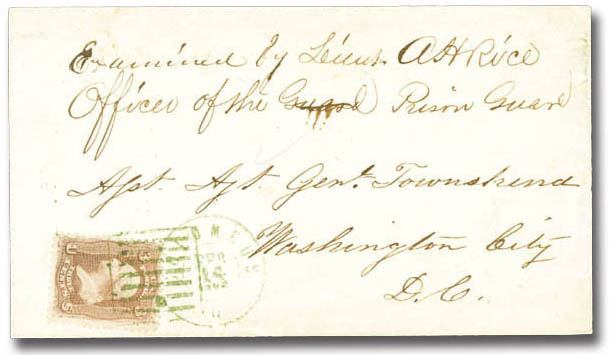 Examined by Lieut. A H Rice
Officer of the Guard Prison Guard
Asst. Ajt. Genl. Townshend
Washington City
D.C.